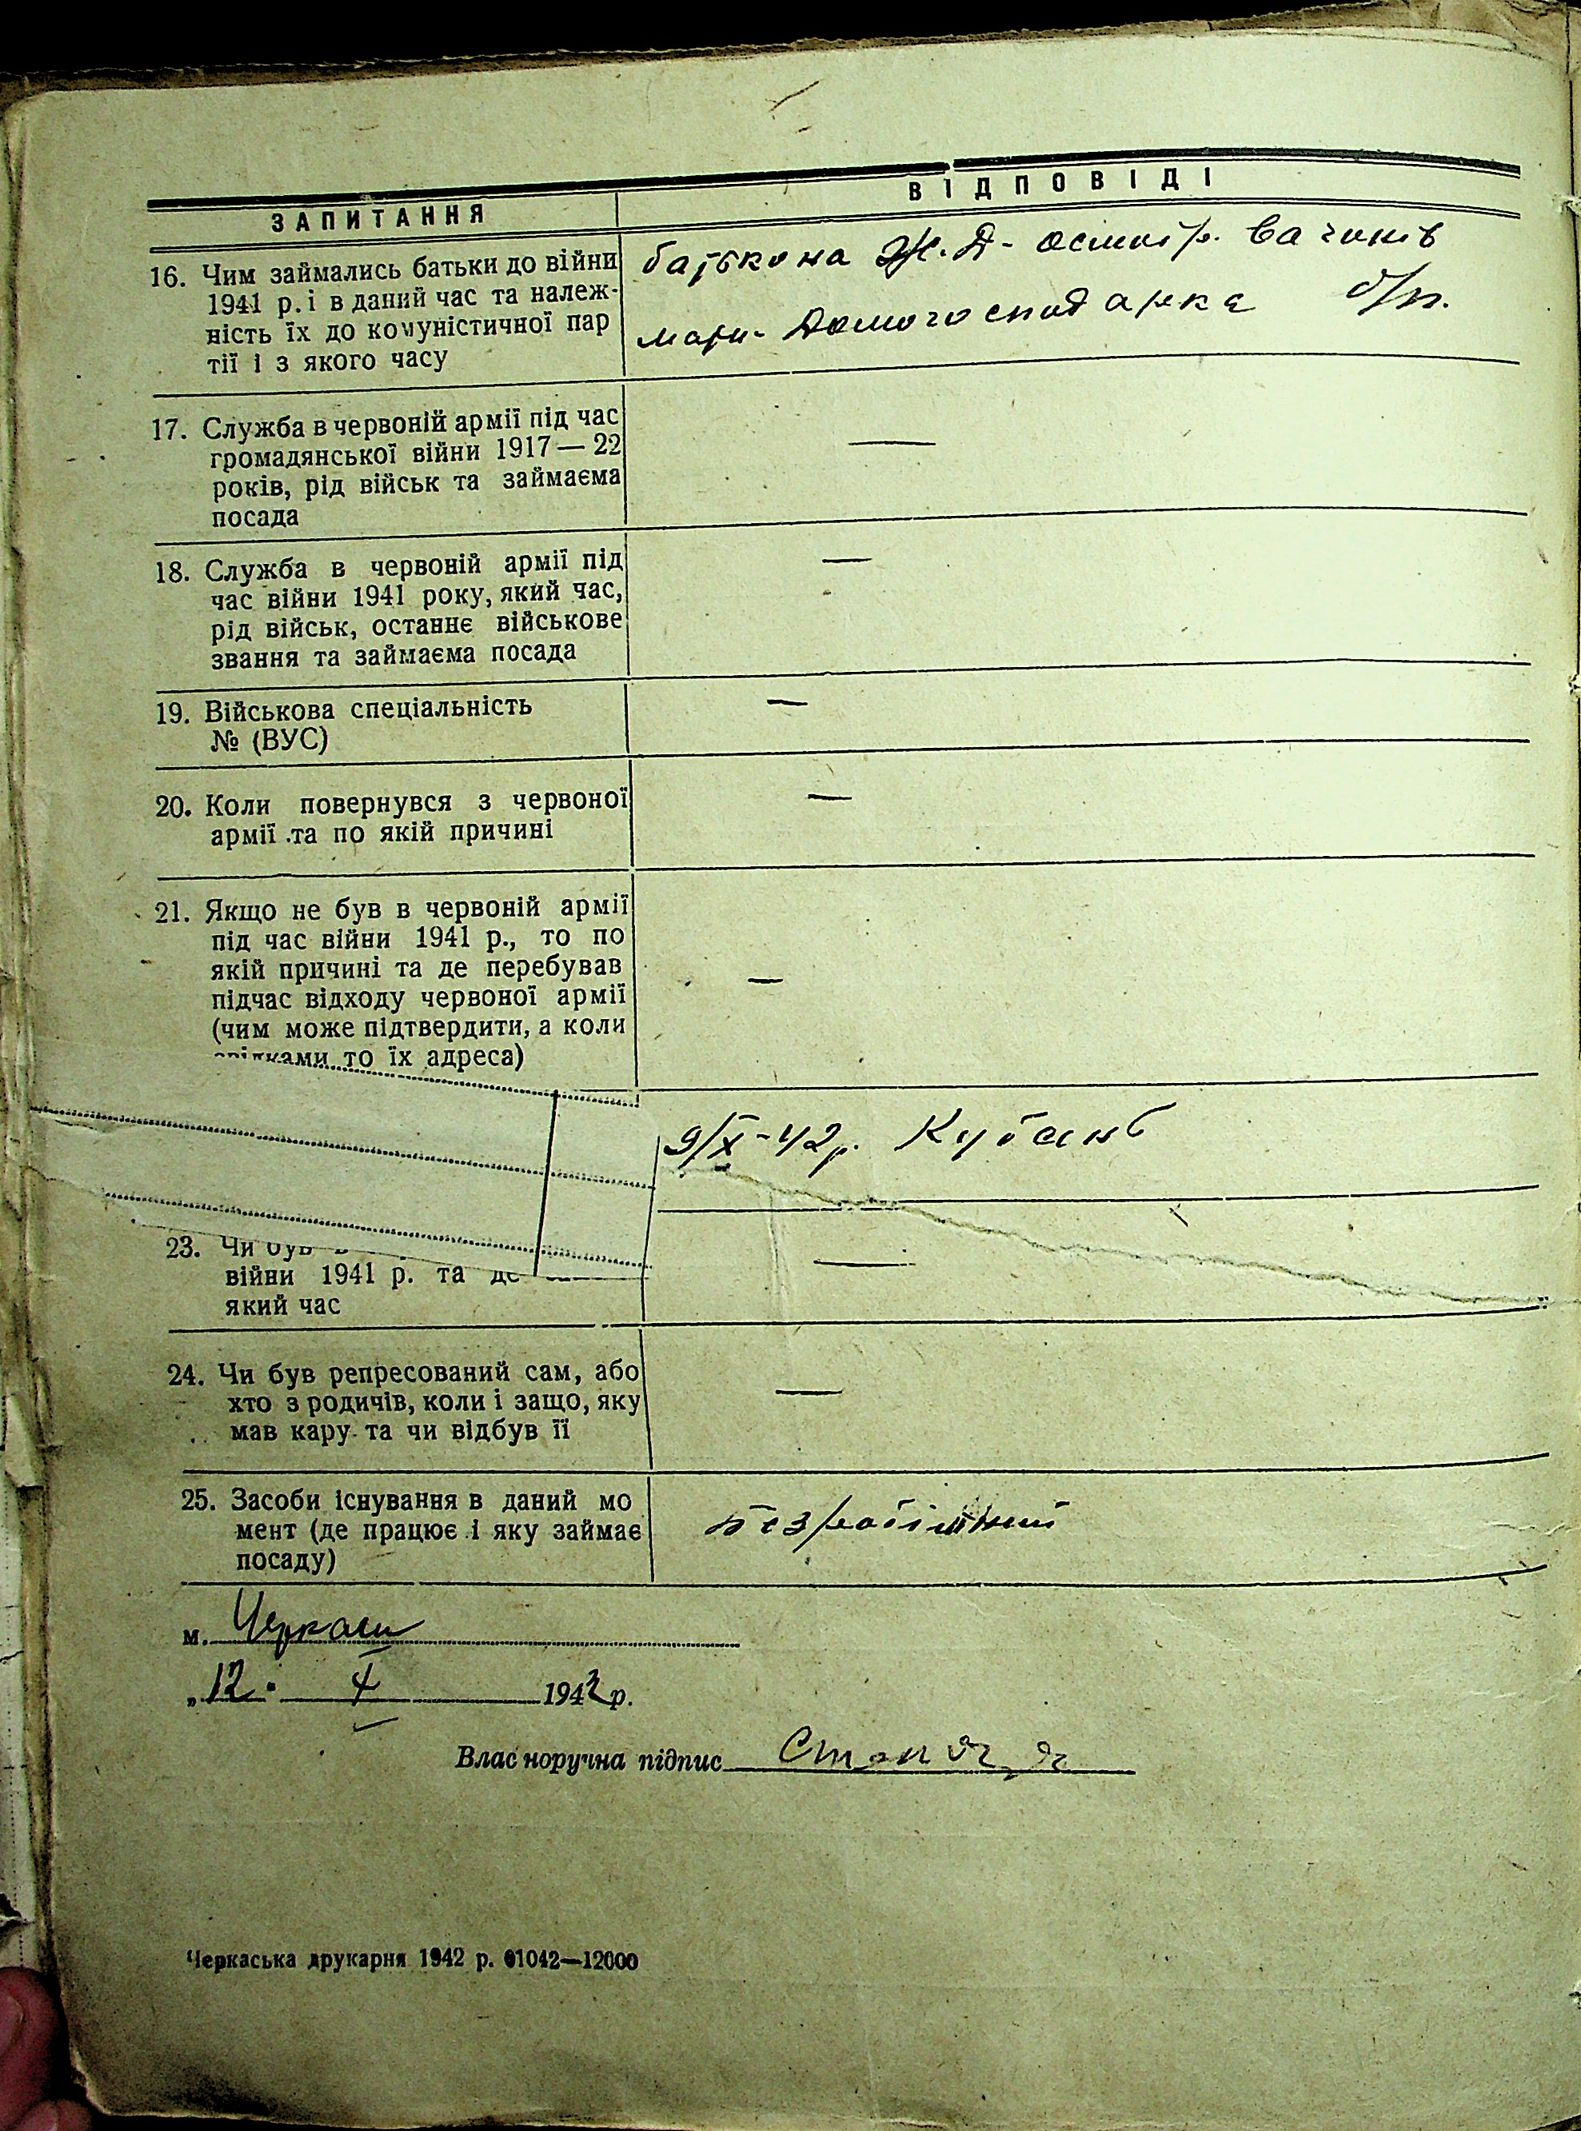 ЗАПИТАННЯ
ВІДПОВІДІ
16. Чим займались батьки до війни
1941 р. і в даний час та належ-
ність їх до комуністичної пар
тії і з якого часу
батько на Ж.Д - осмотр. вагонів
мати - Домогосподарка б/п.
17. Служба в червоній армії під час
громадянської війни 1917 — 22
років, рід військ та займаєма
посада
—
18. Служба в червоній армії під
час війни 1941 року, який час,
рід військ, останнє військове
звання та займаєма посада
—
19. Військова спеціальність
№ (ВУС)
—
20. Коли повернувся з червоної
армії та по якій причині
—
21. Якщо не був в червоній армії
під час війни 1941 р., то по
якій причині та де перебував
підчас відходу червоної армії
(чим може підтвердити, а коли
то їх адреса)
—
9/X-42р. Кубань
23. Чи був
війни 1941 р. та де
який час
—
24. Чи був репресований сам, або
хто з родичів, коли і защо, яку
мав кару та чи відбув її
—
25. Засоби існування в даний мо
мент (де працює і яку займає
посаду)
безробітний
м. Черкаси
„12" X 1942 р.
Власноручна підпис
Черкаська друкарня 1942 р. 01042—12000